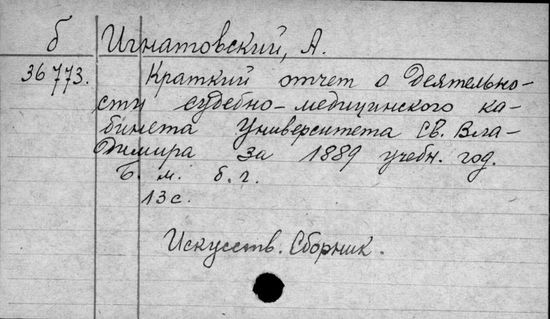 б Игнатовский, А.
36773. Краткий отчет о деятельно-
сти судебно-медицинского ка-
бинета Университета Св. Вла-
димира за 1889 учебн. год.
Б. м. б. г.
13 с.
Искусств. Сборник.